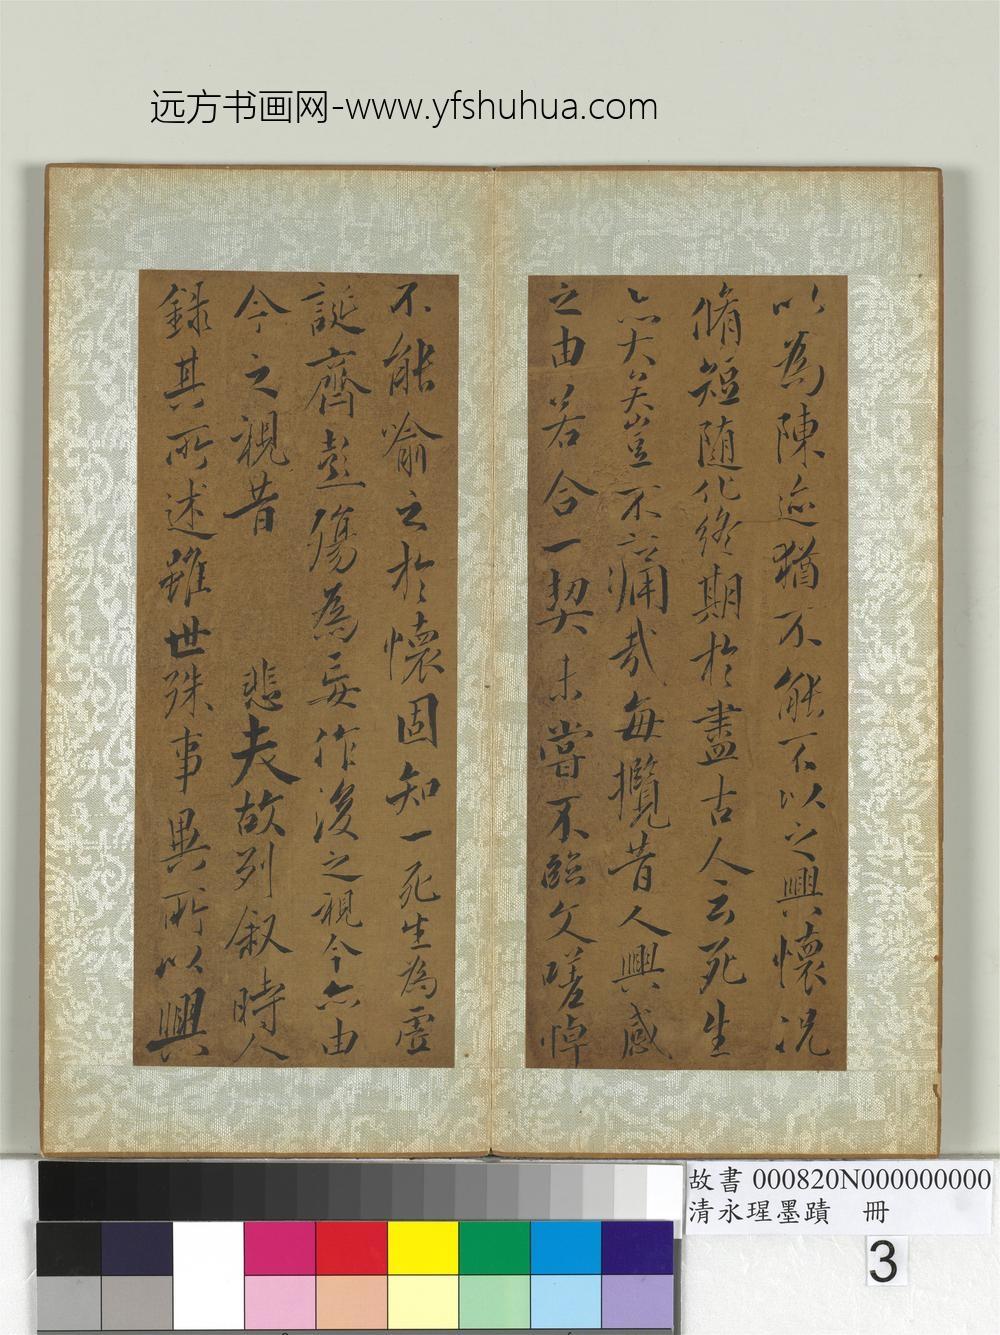 远方书画网-www.yfshuhua.com
以為陳迹猶不能不以之興懷況
脩短随化終期於盡古人云死生
亦大矣豈不痛哉每攬昔人興感
之由若合一契未嘗不臨文嗟悼
不能喻之於懷固知一死生為虛
誕齊彭殤為妄作後之視今亦由
今之視昔 悲夫故列叙時人
錄其所述雖世殊事異所以興
故書 000820N000000000
清永瑆墨蹟 冊
3